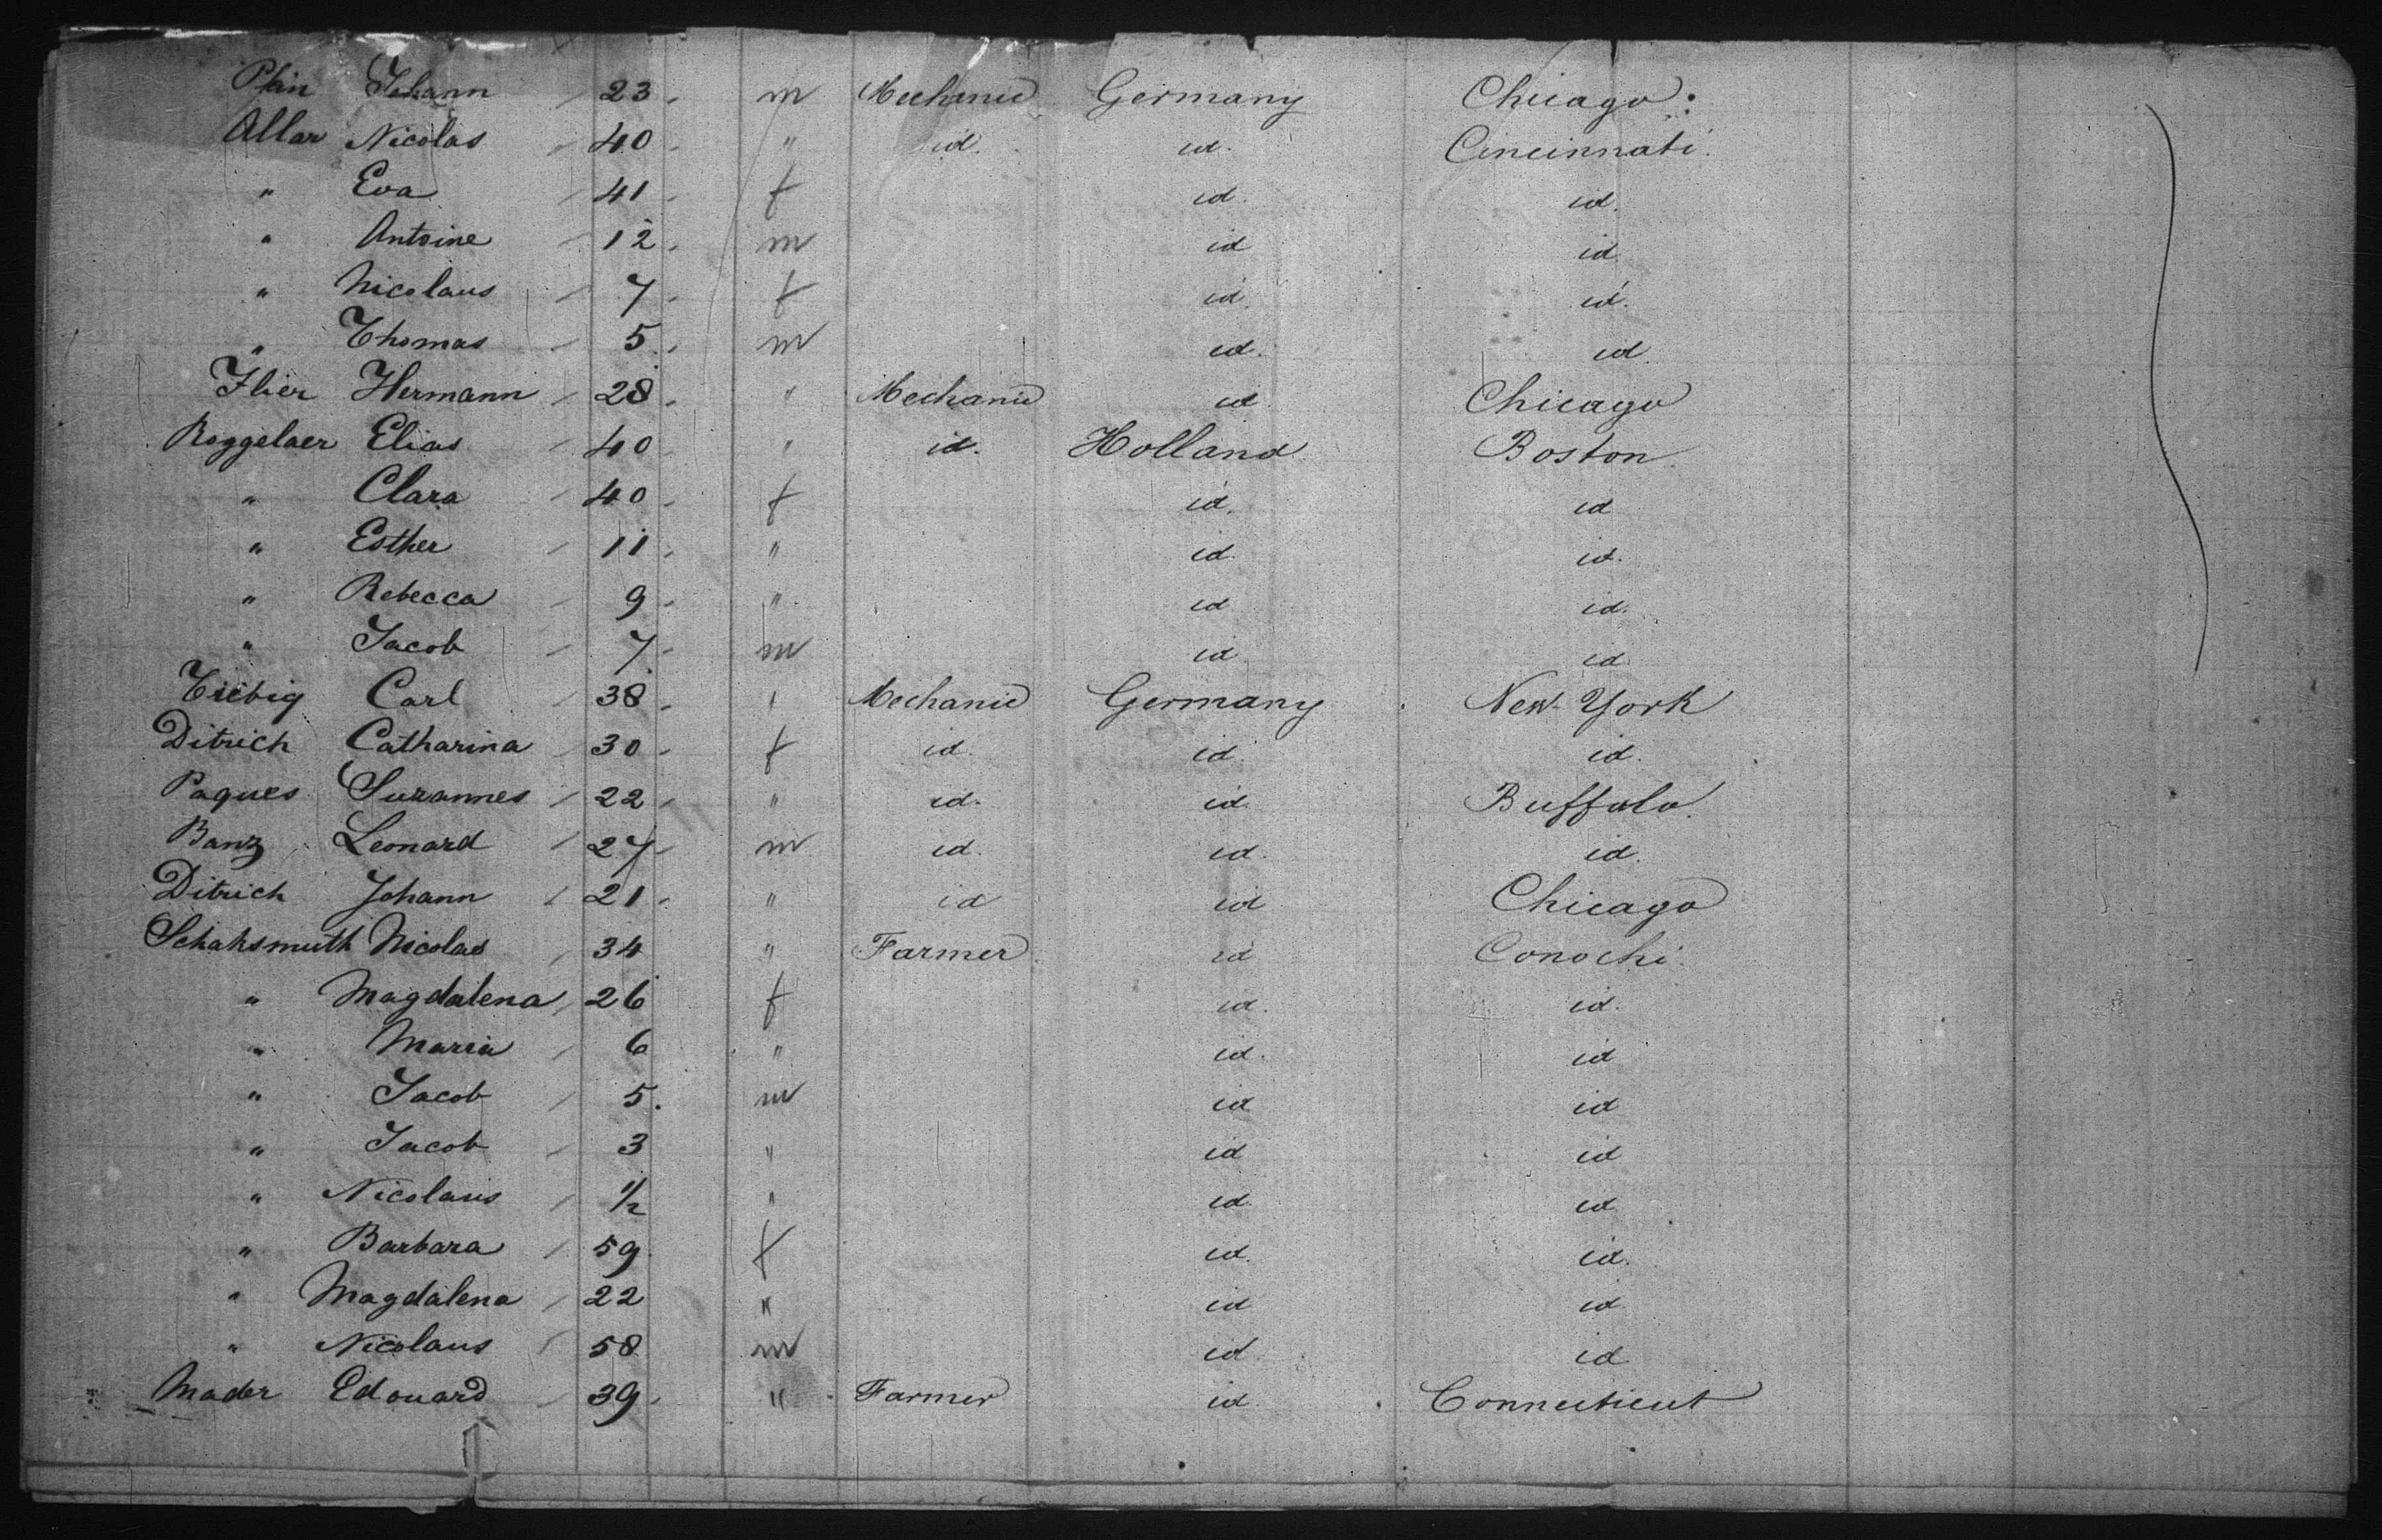 Plein Johann 23 m Mechanic Germany Chicago
Allar Nicolas 40 " id. id. Cincinnati
" Eva 41 f id. id.
" Antoine 12 m id id.
" Nicolaus 7 f id. id.
" Thomas 5 m id. id.
Flier Hermann 28 " Mechanic id. Chicago
Roggelaer Elias 40 " id. Holland Boston
" Clara 40 f id. id
" Esther 11 " id. id.
" Rebecca 9 " id id.
" Jacob 7 m id id
Tiebig Carl 38 " Mechanic Germany New-York
Ditrich Catharina 30 f id. id. id.
Paques Suzannes 22 " id. id. Buffalo.
Banz Leonard 27 m id. id. id.
Ditrich Johann 21 " id id Chicago
Schahsmuth Nicolas 34 " Farmer id Conochi
" Magdalena 26 f id. id.
" Maria 6 " id. id
" Jacob 5. m id id
" Jacob 3 " id id
" Nicolaus 1/2 " id. id
" Barbara 59 f id. id.
" Magdalena 22 " id id
" Nicolaus 58 m id id
Mader Edouard 39 " Farmer id Connecticut